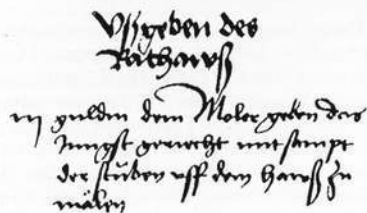 Vßgeben des
Rathawß
iij guldin dem Moler geben das
Jungst gericht mit sampt
der stuben vff dem hawß zu
malen